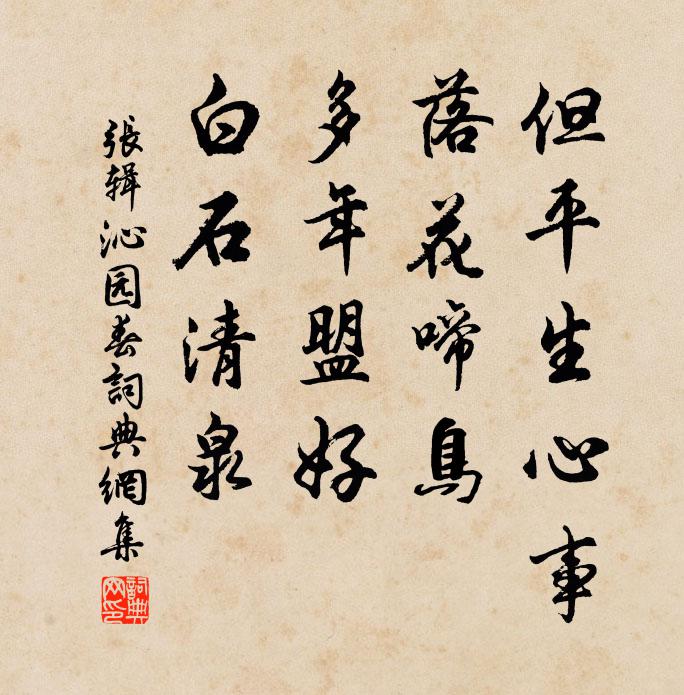 但平生心事
落花啼鳥
多年盟好
白石清泉
張辑沁园春詞典網集
詞典网印